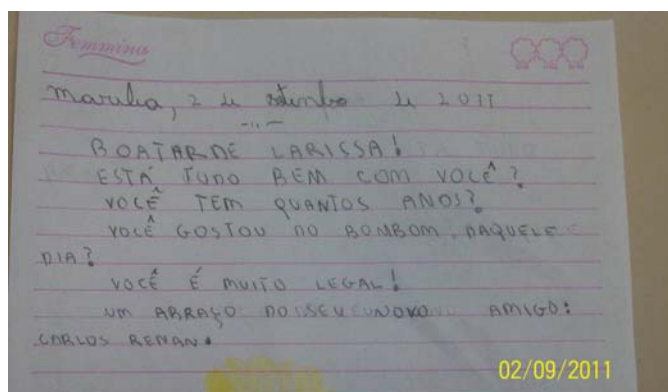 Femmina
Marília, 2 de setembro de 2011
BOATARDE LARISSA!
ESTÁ TUDO BEM COM VOCÊ?
VOCÊ TEM QUANTOS ANOS?
VOCÊ GOSTOU DO BOMBOM DAQUELE
DIA?
VOCÊ É MUITO LEGAL!
UM ABRAÇO DO SEU NOVO AMIGO:
CARLOS RENAN.
02/09/2011